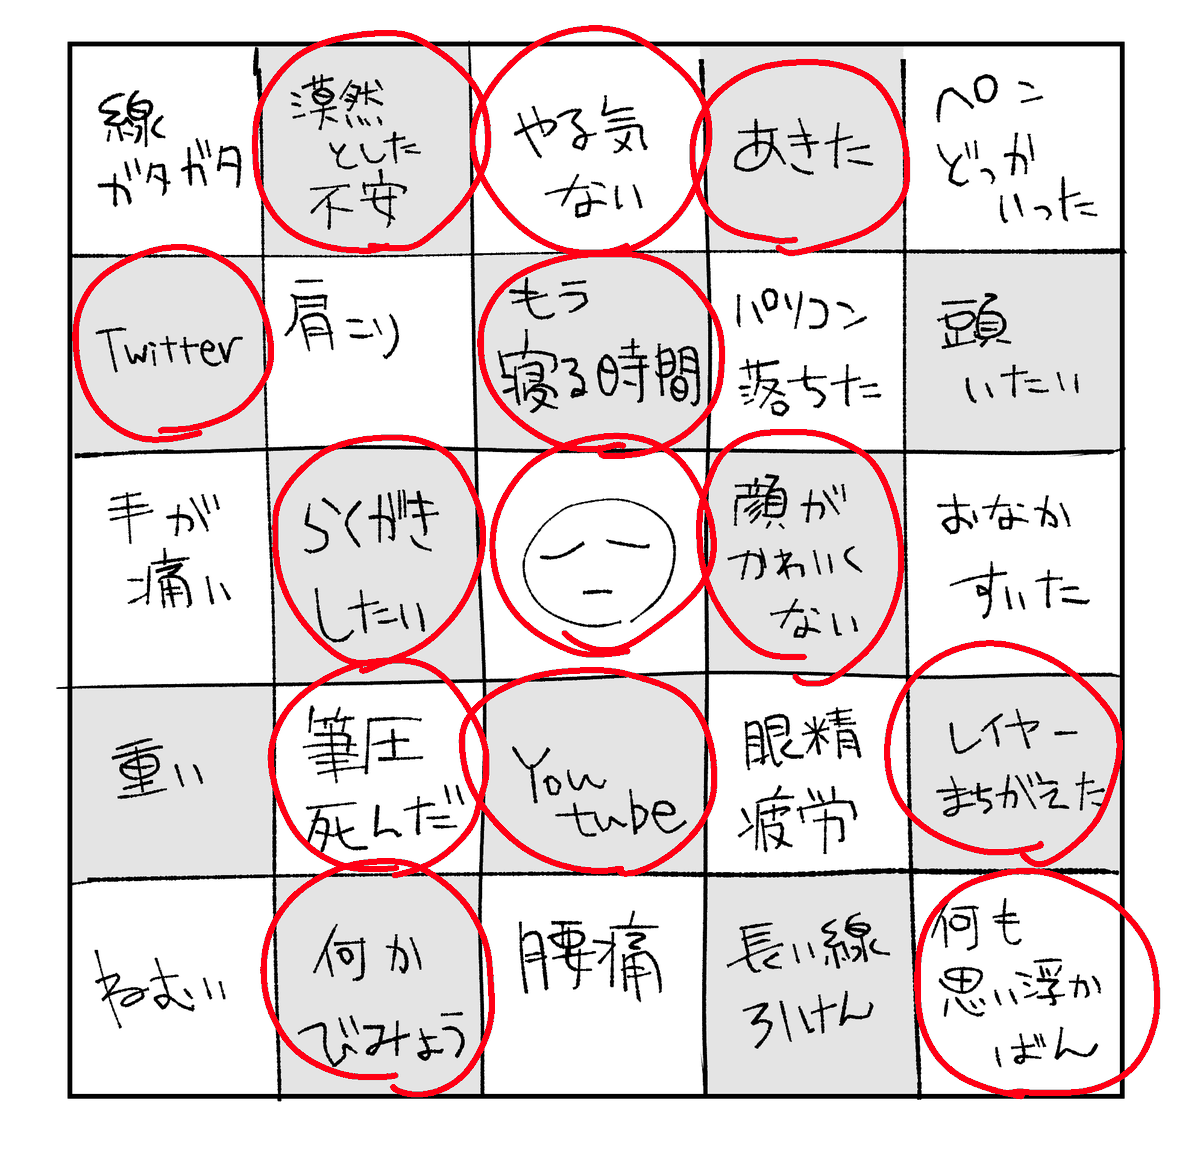 線
ガタガタ
漠然
とした
不安
やる気
ない
あきた
ペン
どっか
いった
Twitter
肩こり
もう
寝る時間
パソコン
落ちた
頭
いたい
手が
痛い
らくがき
したい
顔が
かわいく
ない
おなか
すいた
重い
筆圧
死んだ
You
tube
眼精
疲労
レイヤー
まちがえた
ねむい
何か
びみょう
腰痛
長い線
引けん
何も
思い浮か
ばん